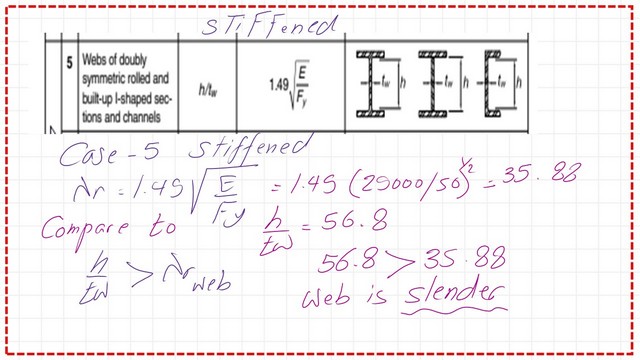 STIFFened
5 Webs of doubly symmetric rolled and built-up I-shaped sections and channels h/tw 1.49√E/Fy tw h tw h tw h
Case-5 stiffened
λr = 1.49 √E/Fy = 1.49 (29000/50)^1/2 = 35.88
Compare to h/tw = 56.8
h/tw > λr web 56.8 > 35.88
web is slender